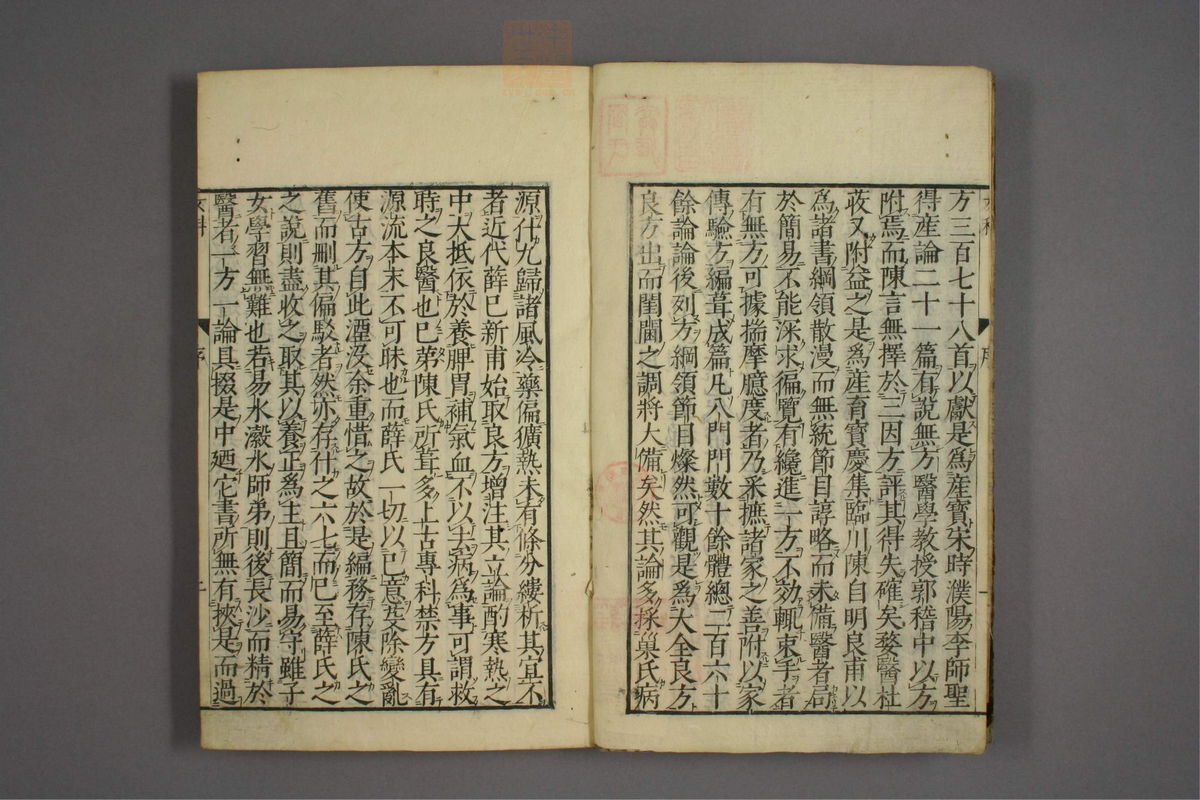 方三百七十八首以獻是爲産寶宋時濮陽李師聖
得産論二十一篇有說無方醫學教授郭稽中以方
附焉而陳言無擇於三因方評其得失確矣婺醫杜
荍又附益之是爲産育寶慶集臨川陳自明良甫以
爲諸書綱領散漫而無統節目諄略而未備醫者局
於簡易不能深求徧覽有纔進一方不効輒束手者
有無方可據揣摩臆度者乃采摭諸家之善附以家
傳驗方編葺成篇凡八門門數十餘體總二百六十
餘論論後列方綱領節目燦然可觀是爲大全良方
良方出而閨閫之調將大備矣然其論多採巢氏病
源什九歸諸風冷藥偏獷熱未有條分縷析其宜不
者近代薛己新甫始取良方增注其立論酌寒熱之
中大抵依於養脾胃補氣血不以去病爲事可謂救
時之良醫也已第陳氏所葺多上古專科禁方具有
源流本末不可昧也而薛氏一切以己意芟除變亂
使古方自此湮没余重惜之故於是編務存陳氏之
舊而删其偏駁者然亦存什之六七而已至薛氏之
之說則盡收之取其以養正爲主且簡而易守雖子
女學習無難也若易水瀫水師弟則後長沙而精於
醫者一方一論具掇是中廼它書所無有挾是而過
女科
序
一